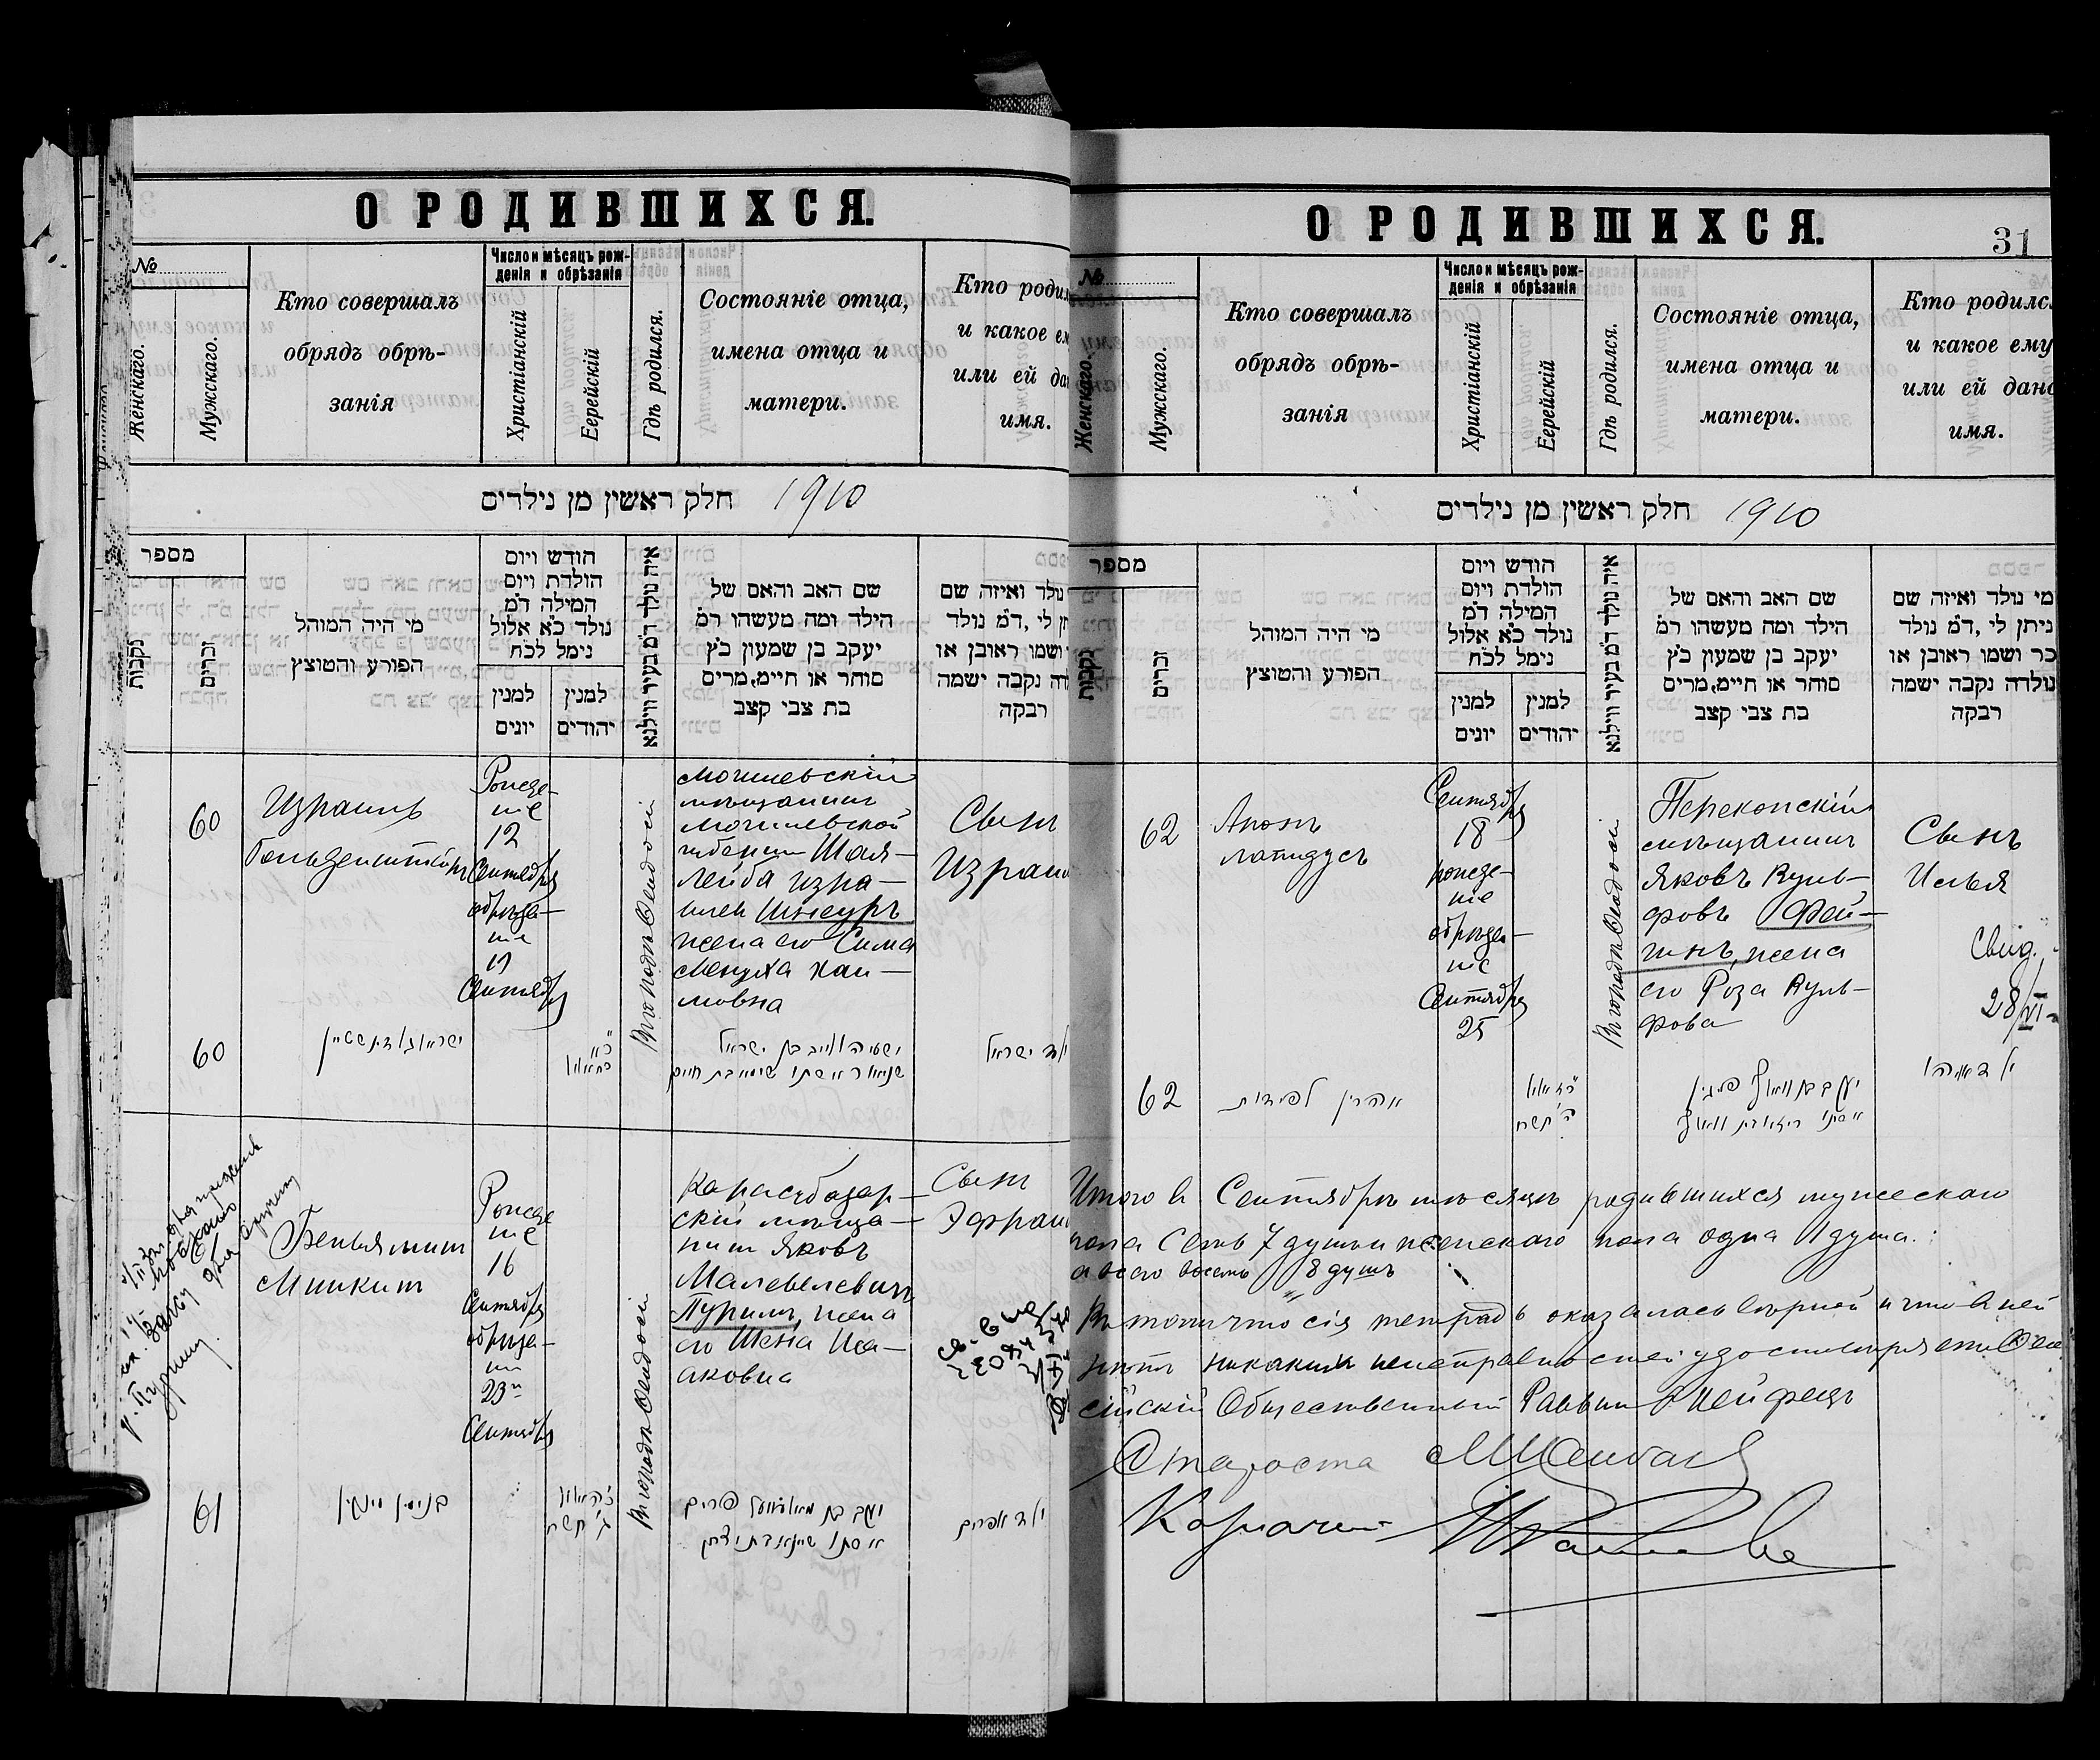 О РОДИВШИХСЯ.
№
Женскаго.
Мужскаго.
Кто совершалъ
обрядъ обрѣ-
занія
Число и мѣсяцъ рож-
денія и обрѣзанія
Христіанскій
Еерейскій
Гдѣ родился.
Состояніе отца,
имена отца и
матери.
Кто родил
и какое ем
или ей да
имя.
חלק ראשין מן נילדים 1910
מספר
נקבות
זכרים
מי היה המוהל
הפורע והטוצץ
חודש ויום
הולדת ויום
המילה ד״מ
נולד כ״א אלול
נימל לכ״ח
למנין
יונים
למנין
יהודים
איה נולד ד״מ בעיר ווילנא
שם האב והאם של
הילד ומה מעשהו ר״מ
יעקב בן שמעון כ״ץ
סוחר או חיים, מרים
בת צבי קצב
נולד ואיזה שם
תן לי, ד״מ נולד
ושמו ראובן או
דה נקבה ישמה
רבקה
60
Израиль
Гольденштейнъ
Рожде-
ніе
12
Сентября
обрѣза-
ніе
19
Сентября
Въ городѣ Ѳеодосіи
Могилевскій
мѣщанинъ
Могилевской
губерніи Шая-
Лейба Изра-
илев Шнеуръ
жена его Сима
Менуха Хаи-
мовна
Сынъ
Израиль
60
ישראל גולדינשטיין
ילד ישראל
Беньяминъ
Минкинъ
Рожде
ніе
16
Сентября
обрѣза-
ніе
23го
Сентября
Въ городѣ Ѳеодосіи
Карасубазар-
скій мѣща-
нинъ Яковъ
Пуримъ, жена
его Шена Иса-
аковна
Сынъ
Эфраим
61
בנימין מינקין
ילד אפרים
О РОДИВШИХСЯ.
31
№
Женскаго.
Мужскаго.
Кто совершалъ
обрядъ обрѣ-
занія
Число и мѣсяцъ рож-
денія и обрѣзанія
Христіанскій
Еерейскій
Гдѣ родился.
Состояніе отца,
имена отца и
матери.
Кто родилс
и какое ему
или ей дано
имя.
חלק ראשין מן נילדים 1910
מספר
נקבות
זכרים
מי היה המוהל
הפורע והטוצץ
חודש ויום
הולדת ויום
המילה ד״מ
נולד כ״א אלול
נימל לכ״ח
למנין
יונים
למנין
יהודים
איה נולד ד״מ בעיר ווילנא
שם האב והאם של
הילד ומה מעשהו ר״מ
יעקב בן שמעון כ״ץ
סוחר או חיים, מרים
בת צבי קצב
מי נולד ואיזה שם
ניתן לי, ד״מ נולד
כר ושמו ראובן או
נולדה נקבה ישמה
רבקה
62
Аронъ
Лапидусъ
Сентября
18
рожде-
ніе
обрѣза-
ніе
Сентября
25
Въ городѣ Ѳеодосіи
Перекопскій
мѣщанинъ
Яковъ Вуль-
фовъ Фей-
гинъ, жена
его Роза Вуль-
фова
Сынъ
Илья
Свид.
28/VI
62
אהרין לפידות
יעקב בן וואלף פייגין
אשתו רוזא בת וואלף
ילד אליהו
Итого въ Сентябрѣ мѣсяцѣ родившихся мужескаго
пола Семь 7 душъ и женскаго пола одна 1 душа.
а всего восемь 8 душъ
Въ томъ что сія тетрадь оказалась вѣрной и что въ ней
нѣтъ никакихъ неисправностей удостовѣряетъ Ѳеодо
сійскій Общественный Раввинъ
Староста
Казначей